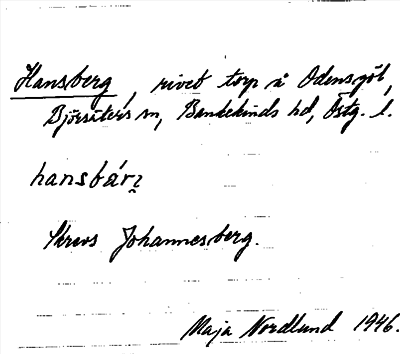 Hansberg, rivet torp å Odensgöl,
Björsäters sn, Bankekinds hd, Östg. l.
hansbárʒ
Skrevs Johannesberg.
Maja Nordlund 1946.